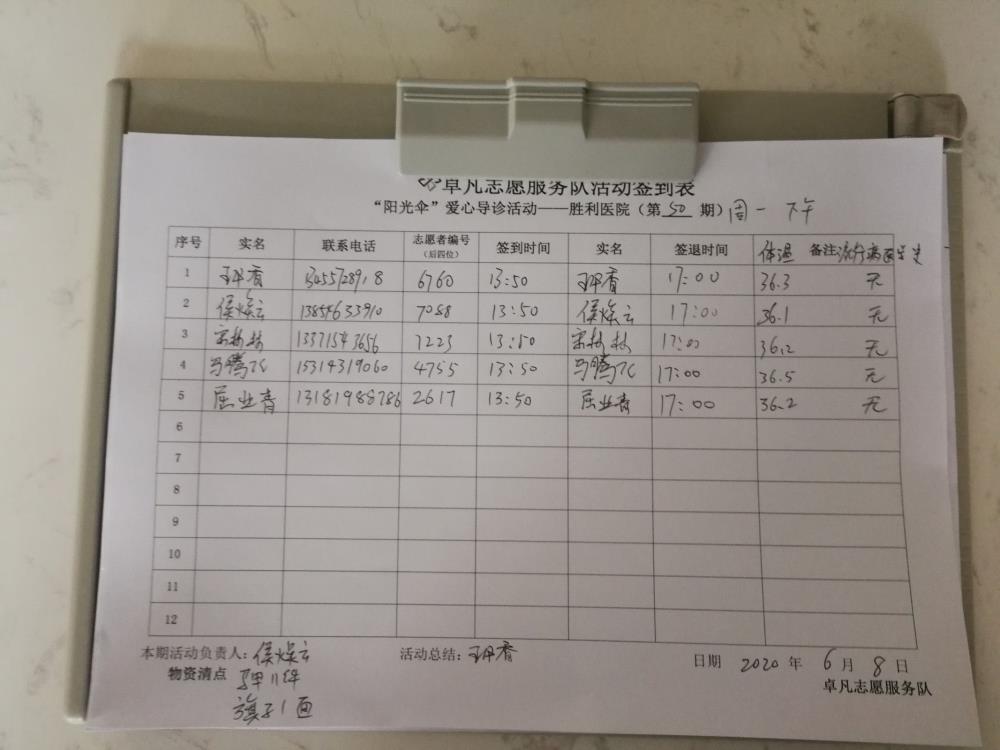 卓凡志愿服务队活动签到表
“阳光伞”爱心导诊活动——胜利医院（第 50 期）周一 下午
序号 实名 联系电话 志愿者编号（后四位） 签到时间 实名 签退时间 体温 备注 流行病
1 香 13455728918 6760 13:50 香 17:00 36.3 无
2 侯焕云 13854633910 7088 13:50 侯焕云 17:00 36.1 无
3 宋林林 13371543656 1223 13:50 宋林林 17:00 36.2 无
4 马腾飞 15314319060 4755 13:50 马腾飞 17:00 36.5 无
5 屈业青 13181988786 2617 13:50 屈业青 17:00 36.2 无
6
7
8
9
10
11
12
本期活动负责人：侯焕云 活动总结：香 日期 2020 年 6 月 8 日
物资清点 11件 卓凡志愿服务队
旗子1面